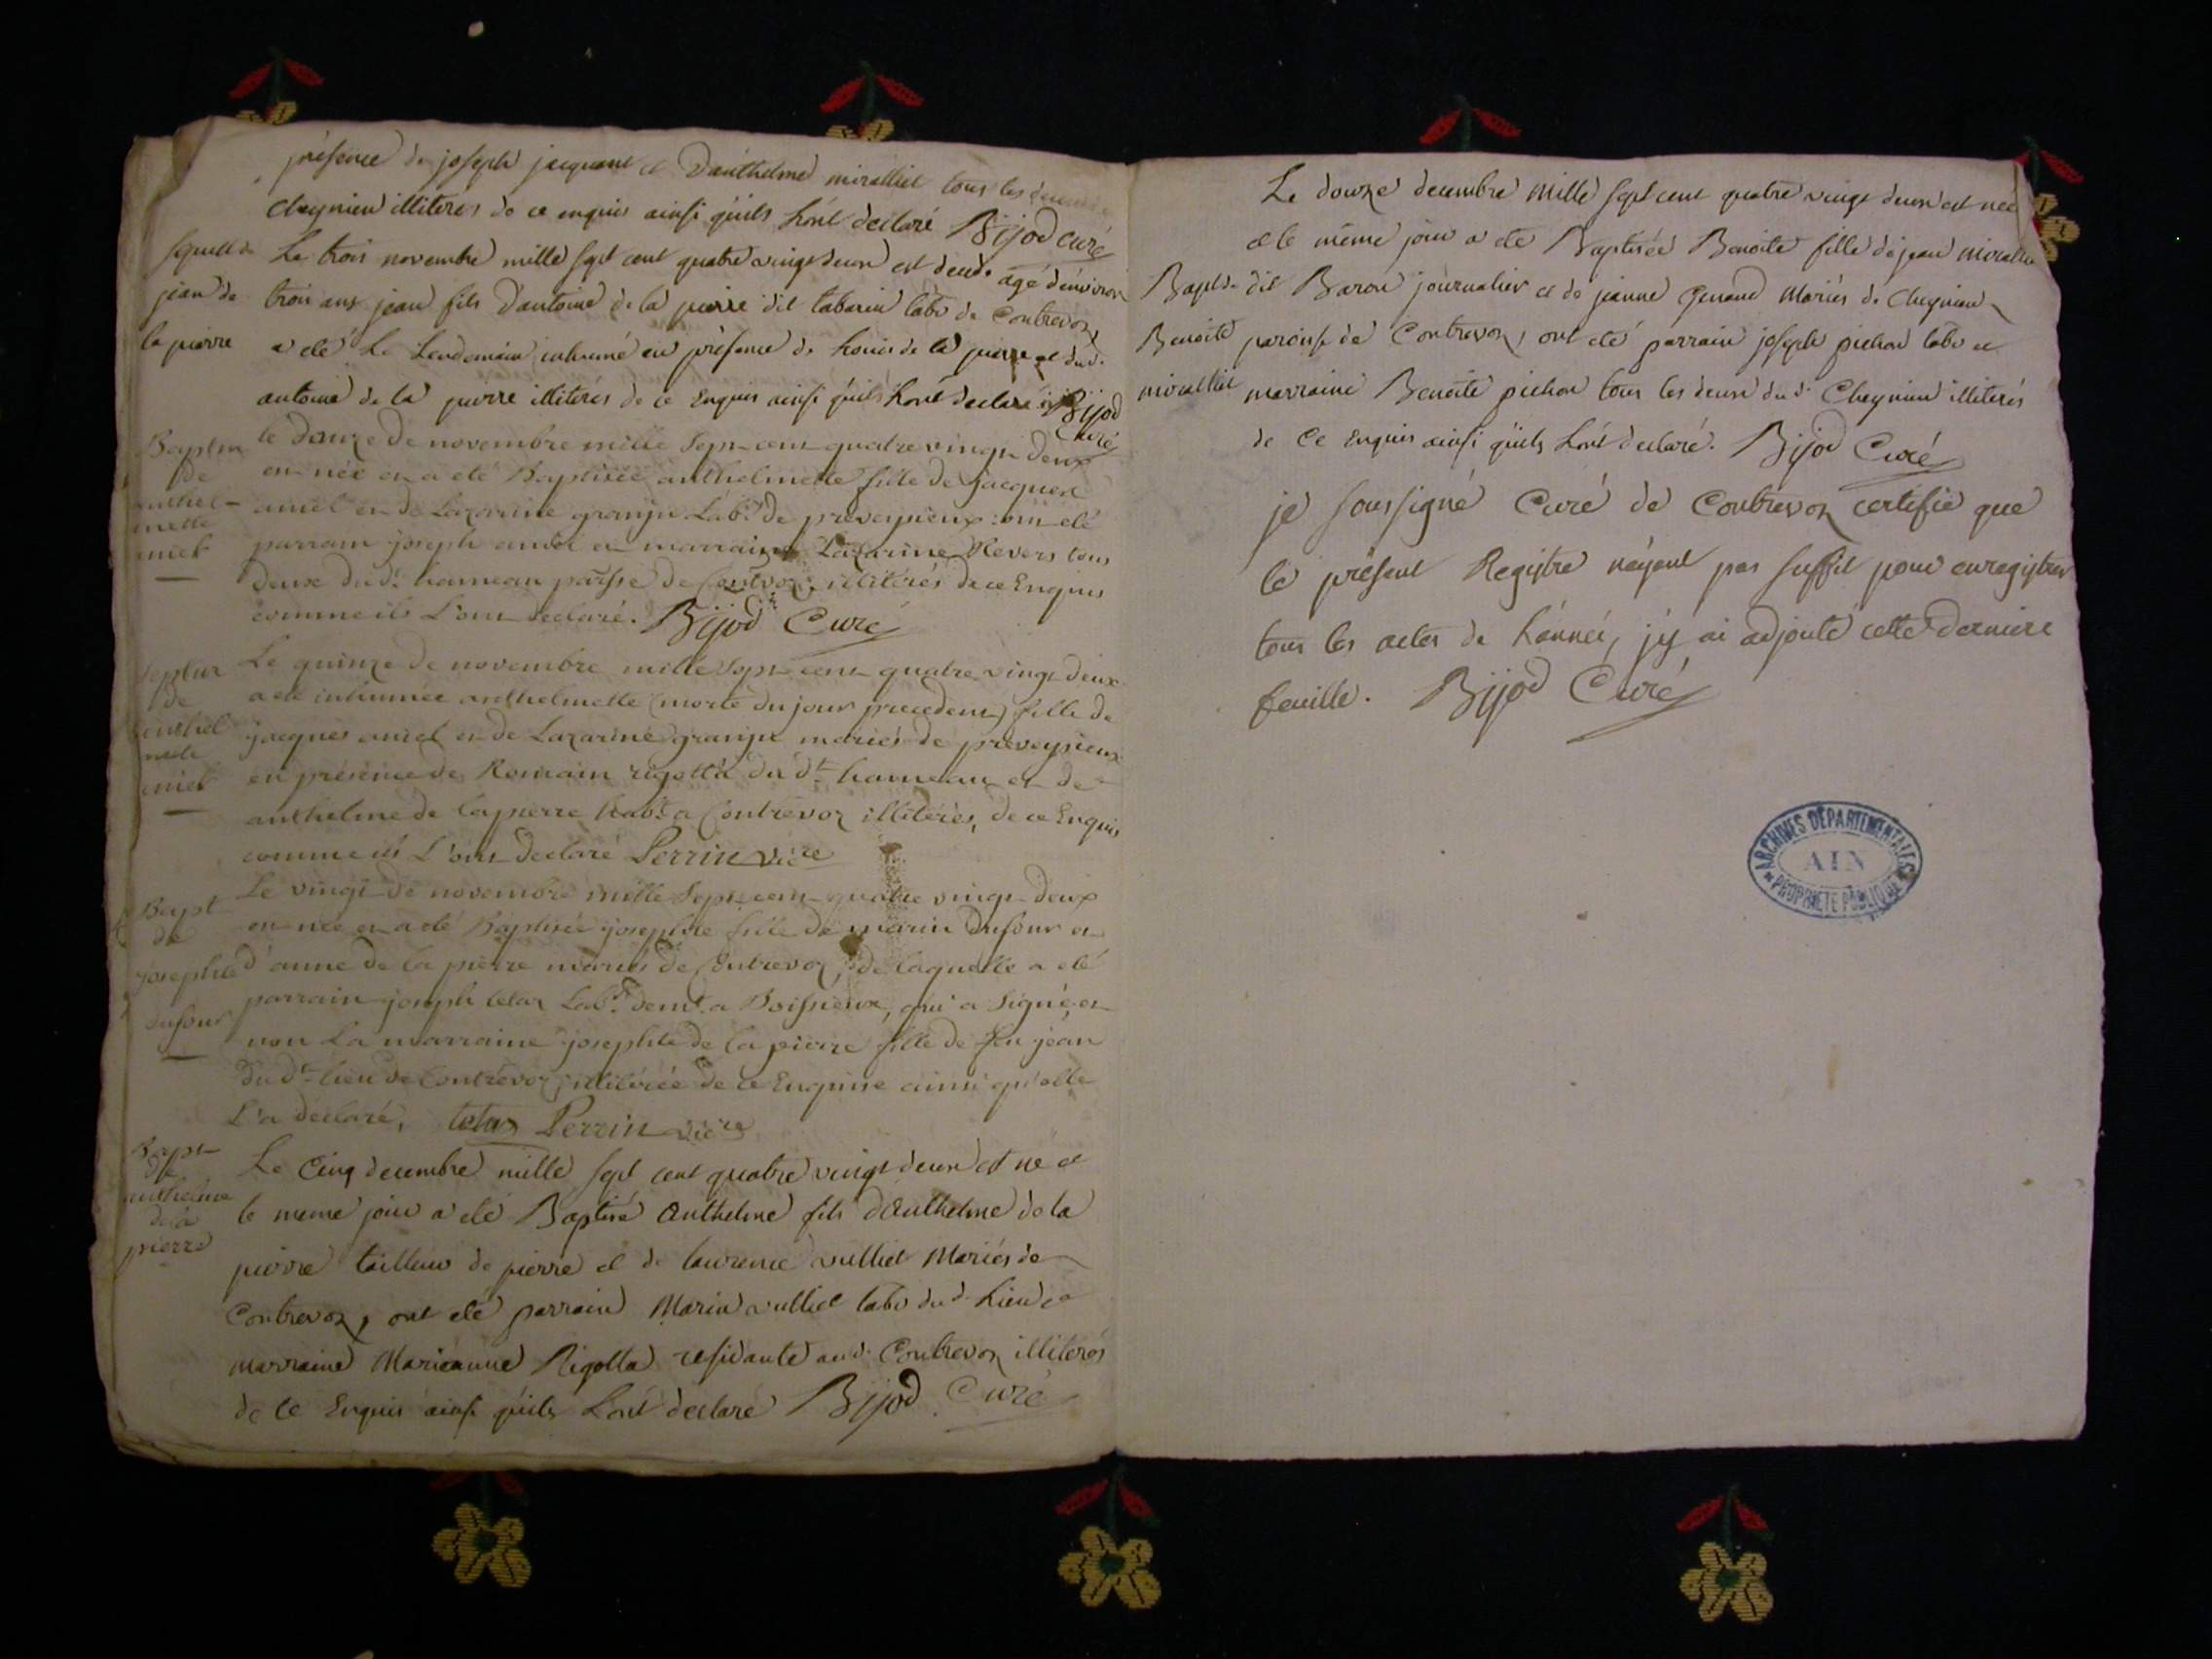 présence de joseph jacquant et d'anthelme miralliet tous les deux de
Cheynieu illiteres de ce enquis ainsi qu'ils l'ont declaré Bijod curé
Sepult. de
jean de
la pierre
Le trois novembre mille sept cent quatre vingt deux est decd. agé d'environ
trois ans jean fils d'antoine de la pierre dit tabarin labr de Contrevoz,
a eté le lendemain inhumé en présence de de la pierre et dud.
antoine de la pierre illiterés de ce Enquis ainsi qu'ils l'ont declaré Bijod
Curé
Baptm
de
anthel-
mette
amiet
le douze de novembre mille sept cent quatre vingt deux
est née et a eté Baptisée anthelmette fille de jacques
amiet et de Lazarine granjn Labr. de preveysieux: ont eté
parrain joseph amiet et marraine Lazarine Revers tous
deux du dt. hameau pärsse de Contrevoz, illitérés de ce Enquis
comme ils l'ont declaré. Bijod Curé
Sepltur
de
anthel
mette
amiet
Le quinze de novembre mille sept cent quatre vingt deux
a eté inhumée anthelmette (morte du jour precedent) fille de
jacques amiet et de Lazarine granjn mariés de preveysieux
en présence de Romain rigottà du dt. hameau et de
anthelme de lapierre habt. a Contrevoz illitérés, de ce Enquis
comme ils l'ont declaré Perrin vicre
Bapt
de
josephte
dufour
Le vingt de novembre mille sept cent quatre vingt deux
est née et a eté Baptisée josephte fille de marin Dufour et
d'anne de la pierre mariés de Contrevoz, de laquelle a eté
parrain joseph tetaz Labr. demt. a Boissieux, qui a signé, et
non la marraine josephte de la pierre fille de feu jean
du dt. lieu de Contrevoz, illitérée de ce Enquise ainsi qu'elle
l'a declaré, tetaz Perrin vicre
Bapt
de
anthelme
de la
pierre
Le Cinq decembre mille sept cent quatre vingt deux est né et
le meme jour a eté Baptisé Anthelme fils d'Anthelme de la
pierre tailleur de pierre et de laurence vulliet Mariés de
Contrevoz, ont eté parrain Marin vulliet labr dud. Lieu et
marraine Marieanne Rigotta residante aud. Contrevoz illiterés
de ce Enquis ainsi qu'ils l'ont declaré Bijod Curé
Le douze decembre Mille sept cent quatre vingt deux est née
et le même jour a eté Baptisée Benoite fille de jean miralliet
Bapt. de
Benoite
miralliet
dit Baron journalier et de jeanne Genand Mariés de Cheynieu
paroisse de Contrevoz, ont eté parrain joseph pichon labr et
marraine Benoite pichon tous les deux dud. Cheynieu illiterés
de Ce Enquis ainsi qu'ils l'ont declaré. Bijod Curé
je soussigné Curé de Contrevoz certifie que
le présent Registre n'ayant pas suffit pour enregistrer
tous les actes de l'année, j'y ai adjouté cette derniere
feuille. Bijod Curé
ARCHIVES DÉPARTEMENTALES
AIN
PROPRIÉTÉ PUBLIQUE